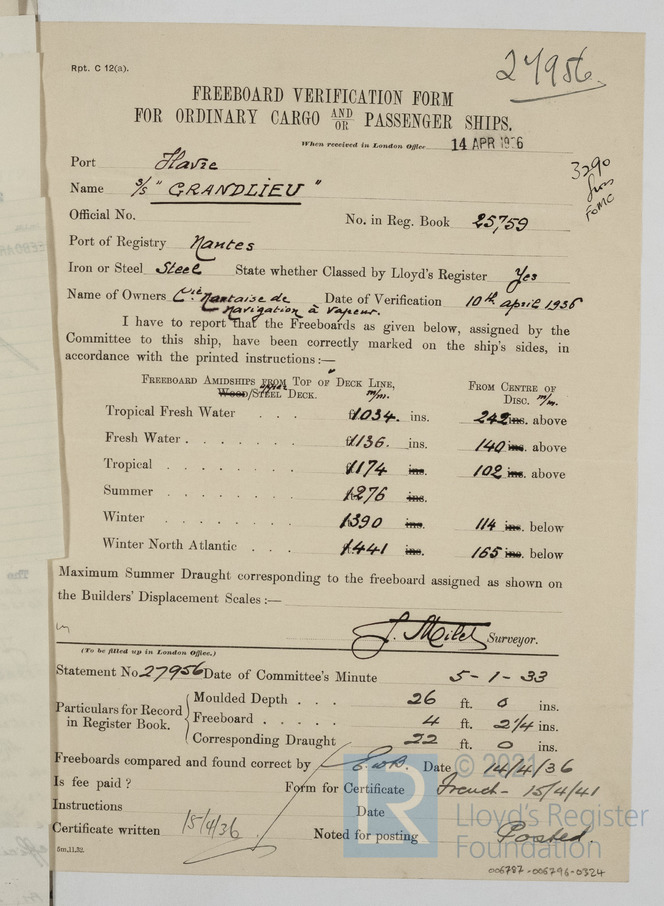 Rpt. C 12(a).
27956
FREEBOARD VERIFICATION FORM
FOR ORDINARY CARGO AND/OR PASSENGER SHIPS.
When received in London Office 14 APR 1936
Port Havre
3290
Name S/S "GRANDLIEU"
FOMC
Official No. No. in Reg. Book 25759
Port of Registry Nantes
Iron or Steel Steel State whether Classed by Lloyd's Register Yes
Name of Owners Cie. Nantaise de Date of Verification 10th April 1936
Navigation à Vapeur.
I have to report that the Freeboards as given below, assigned by the
Committee to this ship, have been correctly marked on the ship's sides, in
accordance with the printed instructions:—
FREEBOARD AMIDSHIPS FROM TOP OF DECK LINE, FROM CENTRE OF
Wood/STEEL upper DECK. m/m. DISC. m/m.
Tropical Fresh Water . . . 1034. ins. 242 ins. above
Fresh Water . . . . . . 1136. ins. 140 ins. above
Tropical . . . . . . . 1174 ins. 102 ins. above
Summer . . . . . . . 1276 ins.
Winter . . . . . . . 1390 ins. 114 ins. below
Winter North Atlantic . . . 1441 ins. 165 ins. below
Maximum Summer Draught corresponding to the freeboard assigned as shown on
the Builders' Displacement Scales :—
J. Milet Surveyor.
(To be filled up in London Office.)
Statement No 27956 Date of Committee's Minute 5-1-33
Particulars for Record in Register Book.
Moulded Depth . . . 26 ft. 0 ins.
Freeboard . . . . . 4 ft. 2 1/4 ins.
Corresponding Draught 22 ft. 0 ins.
Freeboards compared and found correct by Date 14/4/36
Is fee paid ? Form for Certificate French - 15/4/41
Instructions Date
Certificate written 15/4/36. Noted for posting Posted.
5m,11,32.
© 2021
Lloyd's Register
Foundation
006787-006796-0324